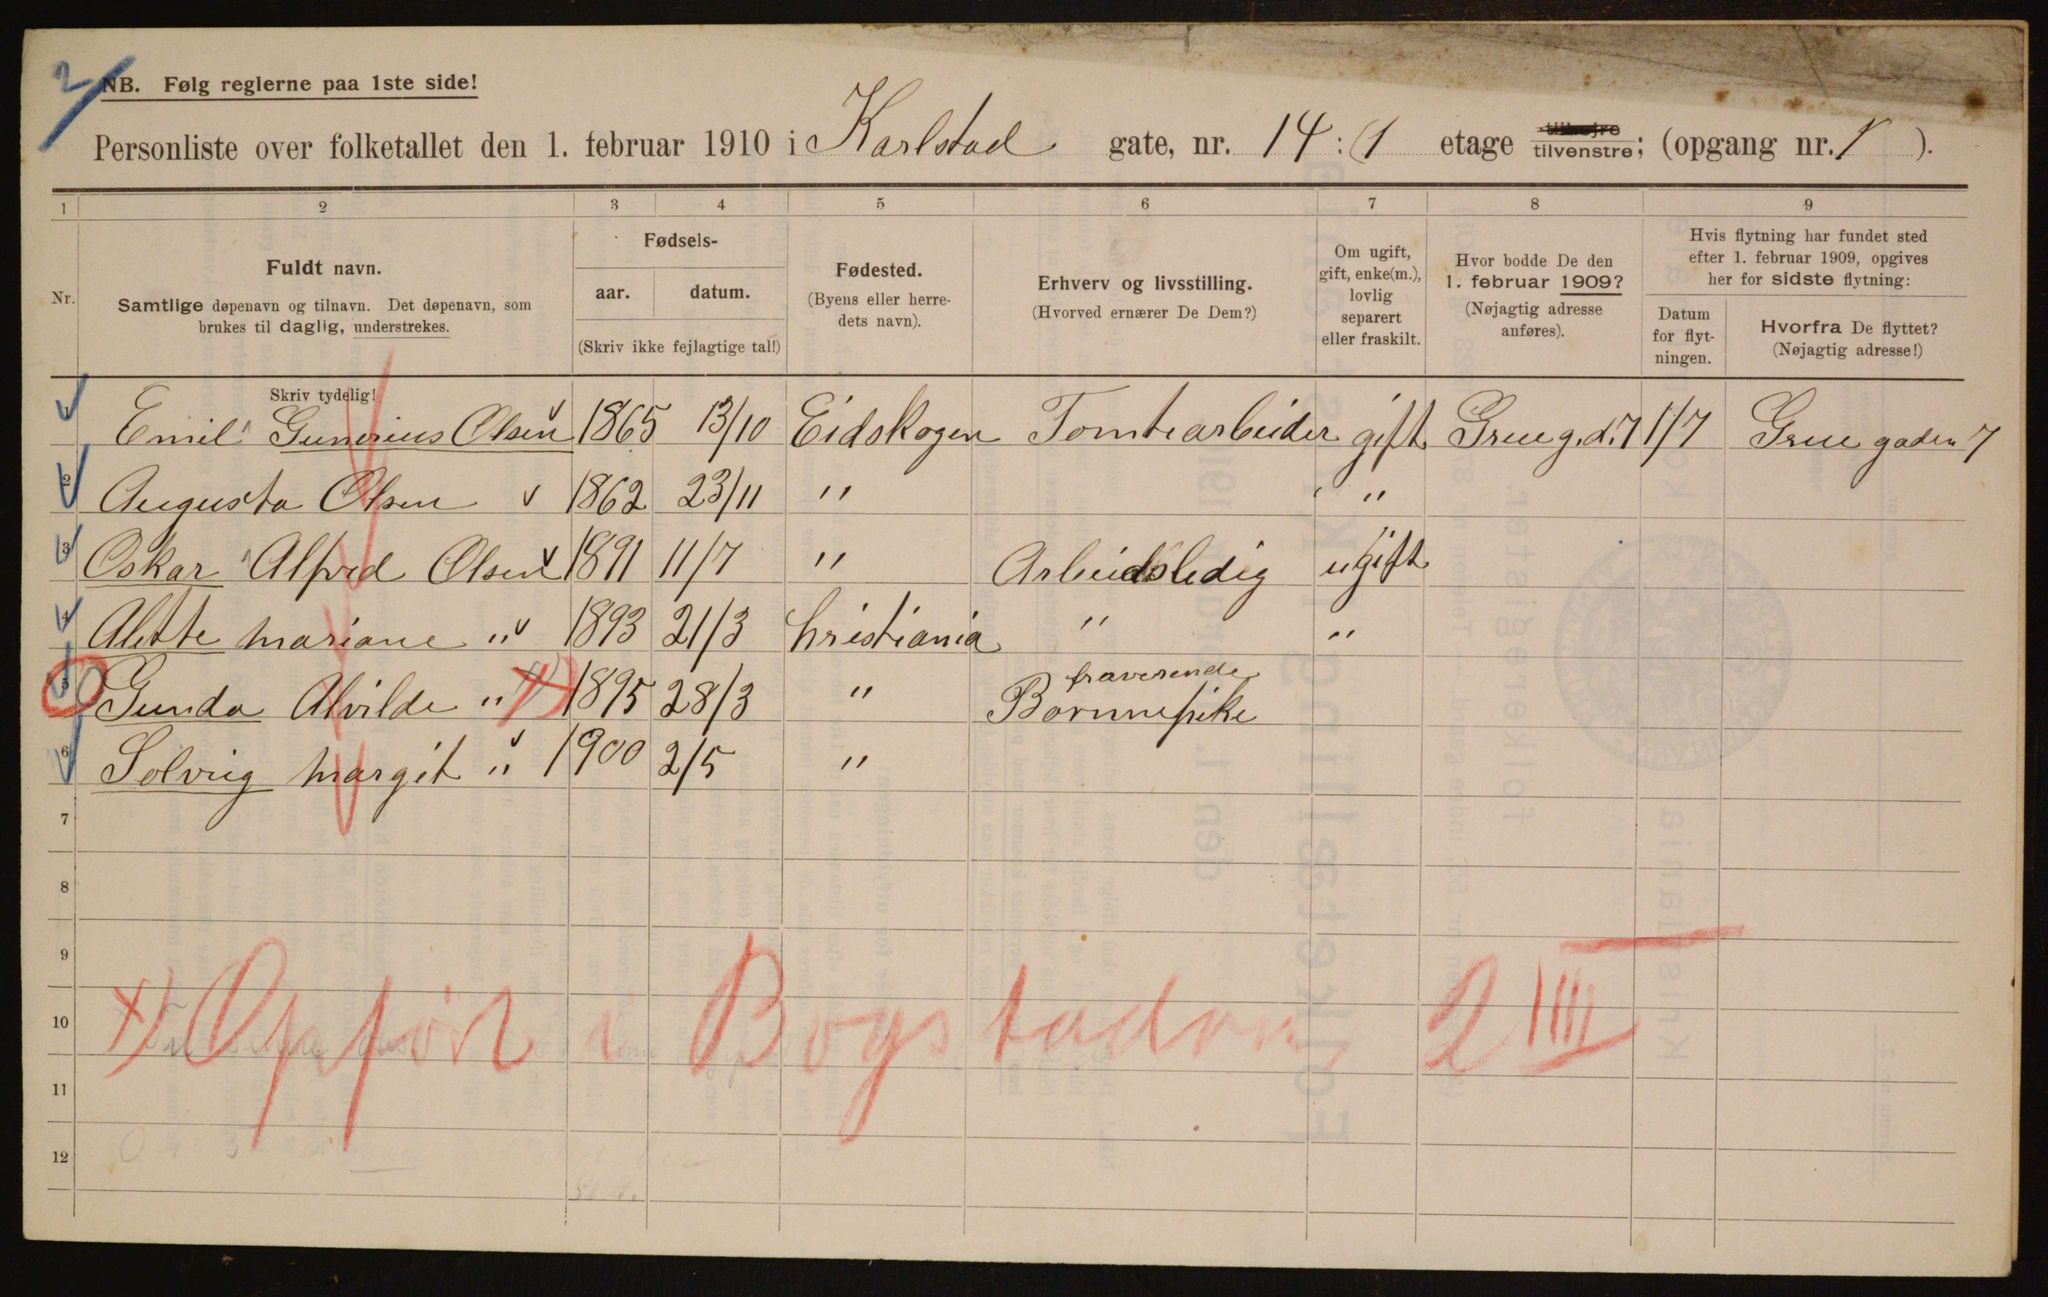 2
NB. Følg reglerne paa 1ste side!
Personliste over folketallet den 1. februar 1910 i Karlstad gate, nr. 14 : 1 etage tilhøjre tilvenstre; (opgang nr. 1 ).
1 2 3 4 5 6 7 8 9
Nr.
Fuldt navn.
Samtlige døpenavn og tilnavn. Det døpenavn, som
brukes til daglig, understrekes.
Fødsels-
aar. datum.
(Skriv ikke fejlagtige tal!)
Fødested.
(Byens eller herre-
dets navn).
Erhverv og livsstilling.
(Hvorved ernærer De Dem?)
Om ugift,
gift, enke(m.),
lovlig
separert
eller fraskilt.
Hvor bodde De den
1. februar 1909?
(Nøjagtig adresse
anføres).
Hvis flytning har fundet sted
efter 1. februar 1909, opgives
her for sidste flytning:
Datum
for flyt-
ningen.
Hvorfra De flyttet?
(Nøjagtig adresse!)
Skriv tydelig!
1 Emil Gunerius Olsen 1865 13/10 Eidskogen Tomtearbeider gift Grueg.d.7 1/7 Grue gaden 7
2 Augusta Olsen 1862 23/11 " "
3 Oskar Alfred Olsen 1891 11/7 " Arbeidsledig ugift
4 Alette Mariane " 1893 21/3 Christiania " "
5 Gunda Alvilde " x) 1895 28/3 " fraverende Barnepike
6 Solveig Margit " 1900 2/5 "
7
8
9
10
11
12
x) Opført i Bogstadvn. 2 IIII